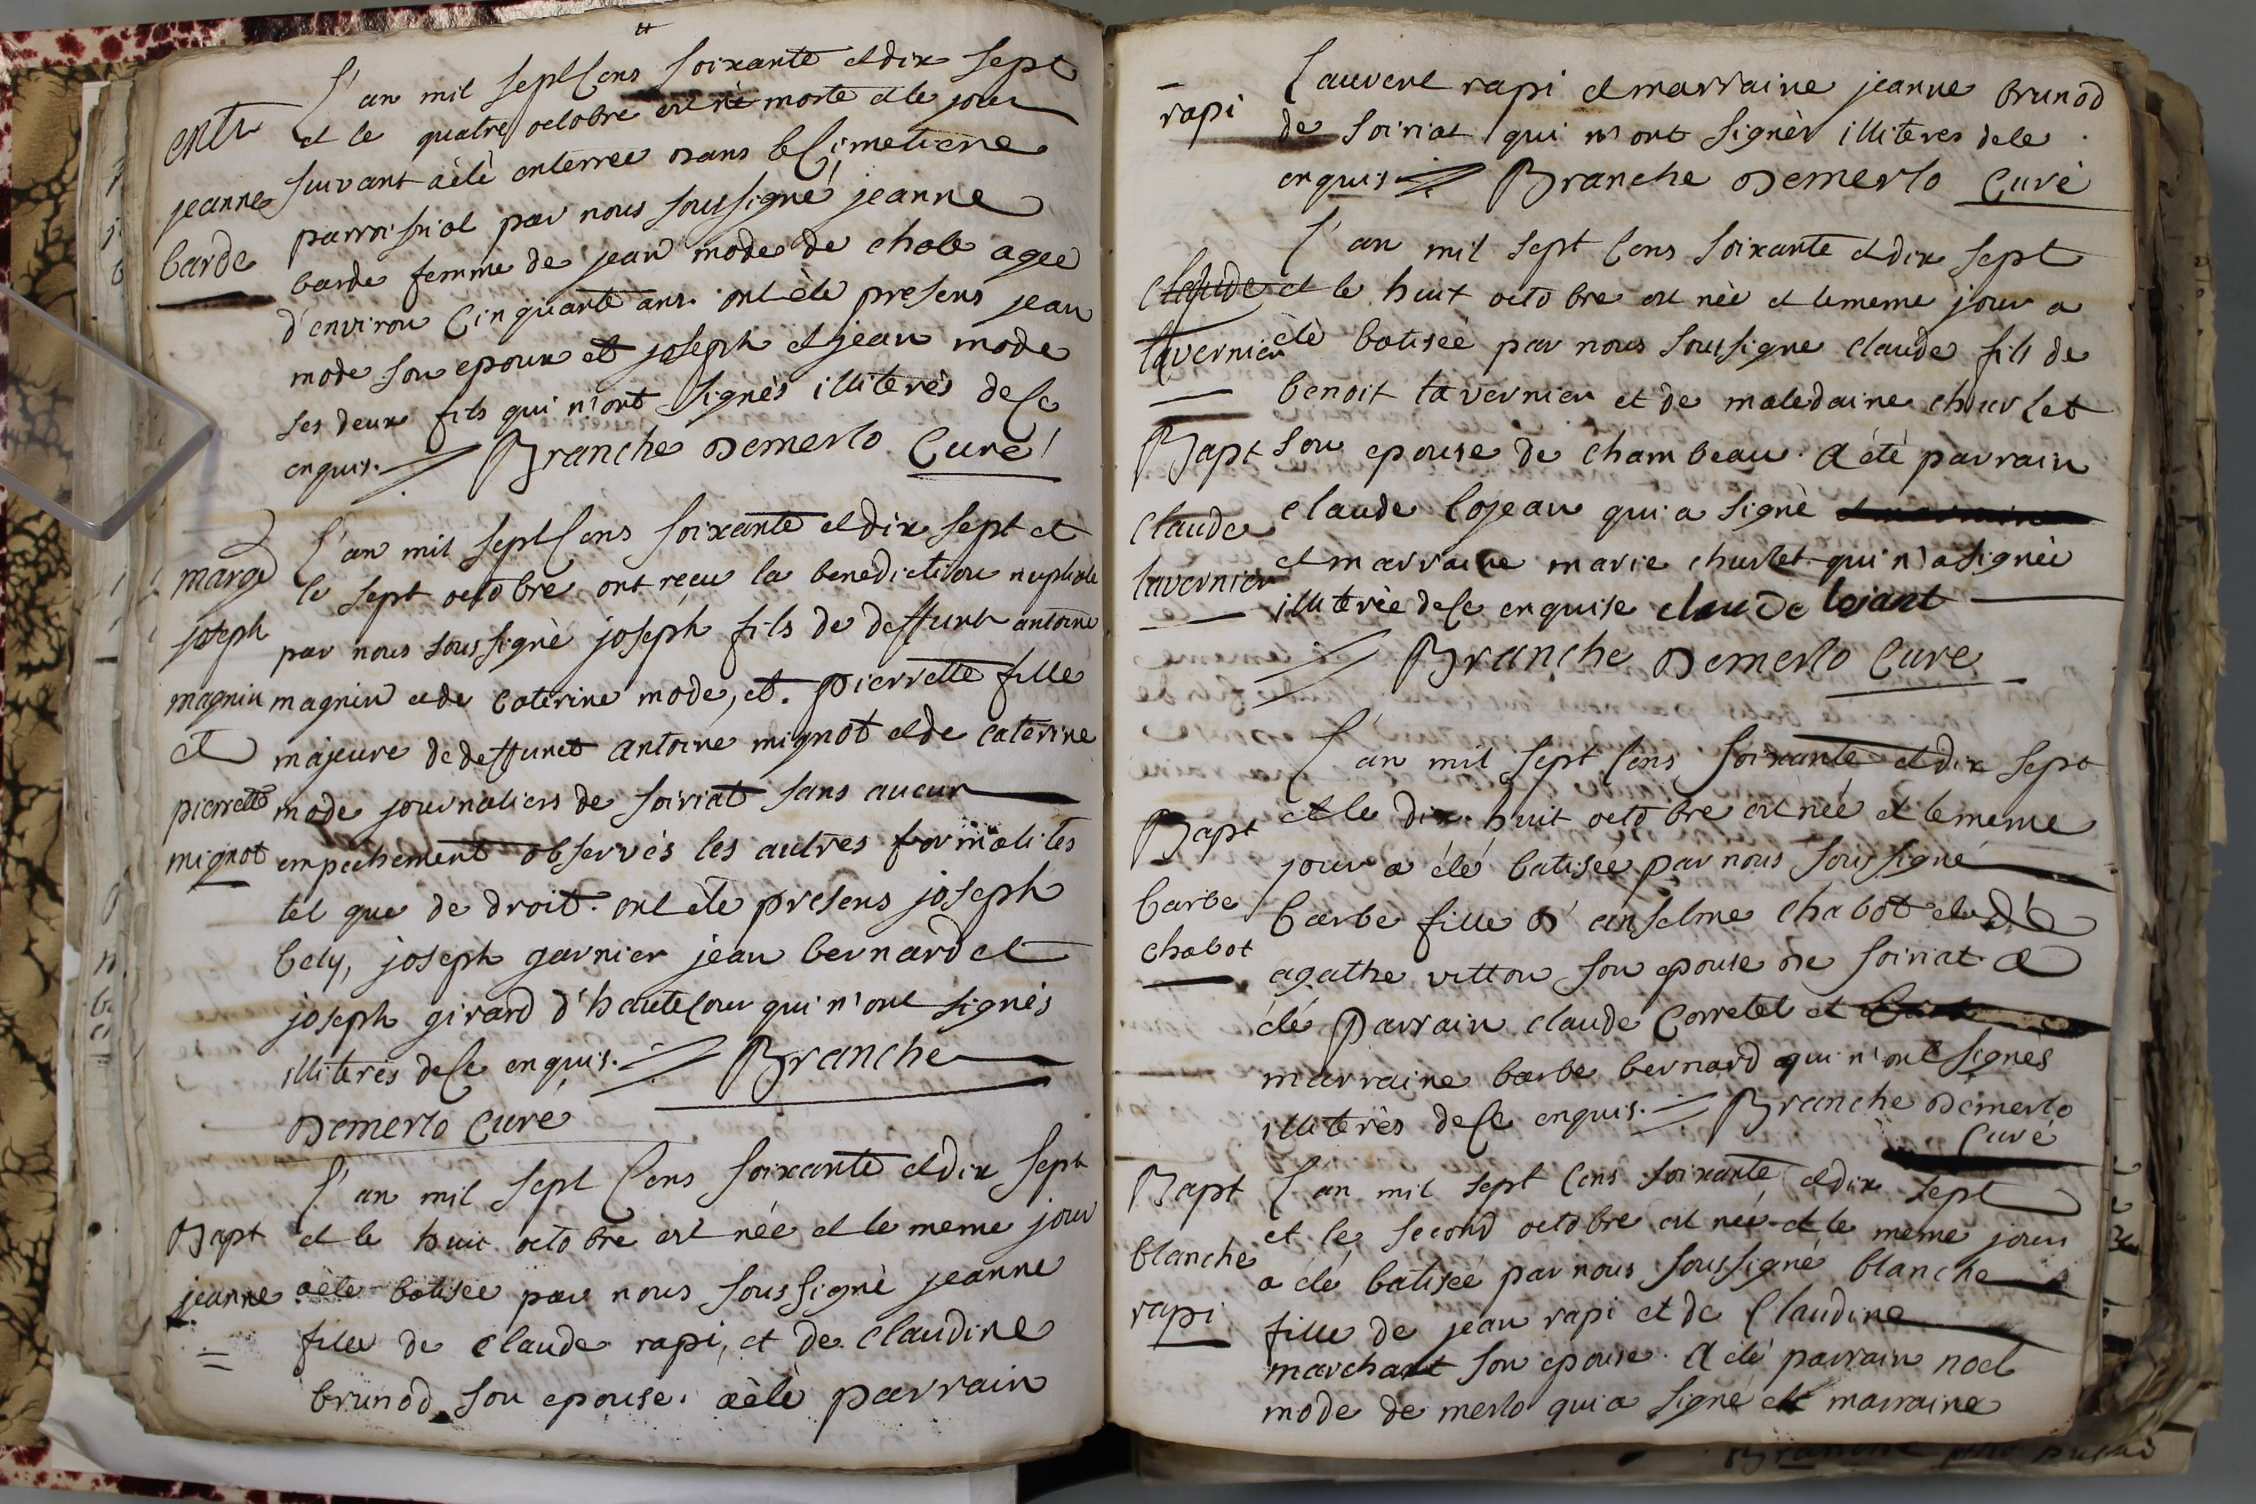 entr
jeanne
barde
L'an mil sept Cens soixante et dix sept
et le quatre octobre est morte et le jour
suivant a èlè enterrée dans le Cimetiere
parroissial par nous soussigné jeanne
barde femme de jean mode de chole agée
d'environ Cinquante ans. ont èlè presens jean
mode son epoux et joseph et jean mode
ses deux fils qui n'ont signès illiterès de Ce
enquis. Branche Demerlo Curé
marge
joseph
magnin
et
pierrette
mignot
L'an mil sept Cens soixante et dix sept et
le sept octobre ont reçu la benediction nuptiale
par nous soussignè joseph fils de deffunt antoine
magnin et de Caterine mode, et. pierrette fille
majeure de deffunct antoine mignot et de caterine
mode journaliers de soiriat sans aucun
empechement observès les autres formalitès
tel que de droit. ont ète presens joseph
bely, joseph garnier jean bernard et
joseph girard d'hautecour qui n'ont signès
illiterès de Ce enquis. Branche
Demerlo Curé
Bapt
jeanne
L'an mil sept Cens soixante et dix sept
et le huit octobre est née et le meme jour
a ète batisée par nous soussignè jeanne
fille de Claude rapi, et de Claudine
brunod son epouse. a èlè parrain
rapi
Lauvent rapi et marraine jeanne brunod
de soiriat qui n'ont signès illiteres de Ce
enquis Branche Demerlo Curè
claude
tavernier
Bapt
claude
tavernier
L'an mil sept Cens soixante et dix sept
et le huit octobre est nèe et le meme jour a
ètè batiseè par nous soussigne claude fils de
benoit tavernier et de maledaine churlet
son epouse de chambeau. A été parrain
claude Cojean qui a signè
et marraine marie churlet qui n'a signèe
illiterèe de Ce enquise claude lojant
Branche Demerlo Cure
Bapt
barbe
chabot
L'an mil sept Cens soixante et dix sept
et le dix huit octobre est née et le meme
jour a èlé batisée par nous soussigné
barbe fille d'anselme chabot et de
agathe vitton son epouse de soiriat. A
élé Parrain claude Corretel et
marraine barbe bernard qui n'ont signès
illiterès de Ce enquis. Branche Demerlo
Curé
Bapt
blanche
rapi
L'an mil sept Cens soixante et dix sept
et le second octobre est née et le meme jour
a élé batisée par nous soussigné blanche
fille de jean rapi et de Claudine
marchant son epouse. A élé parrain noel
mode de merlo qui a signé et marraine